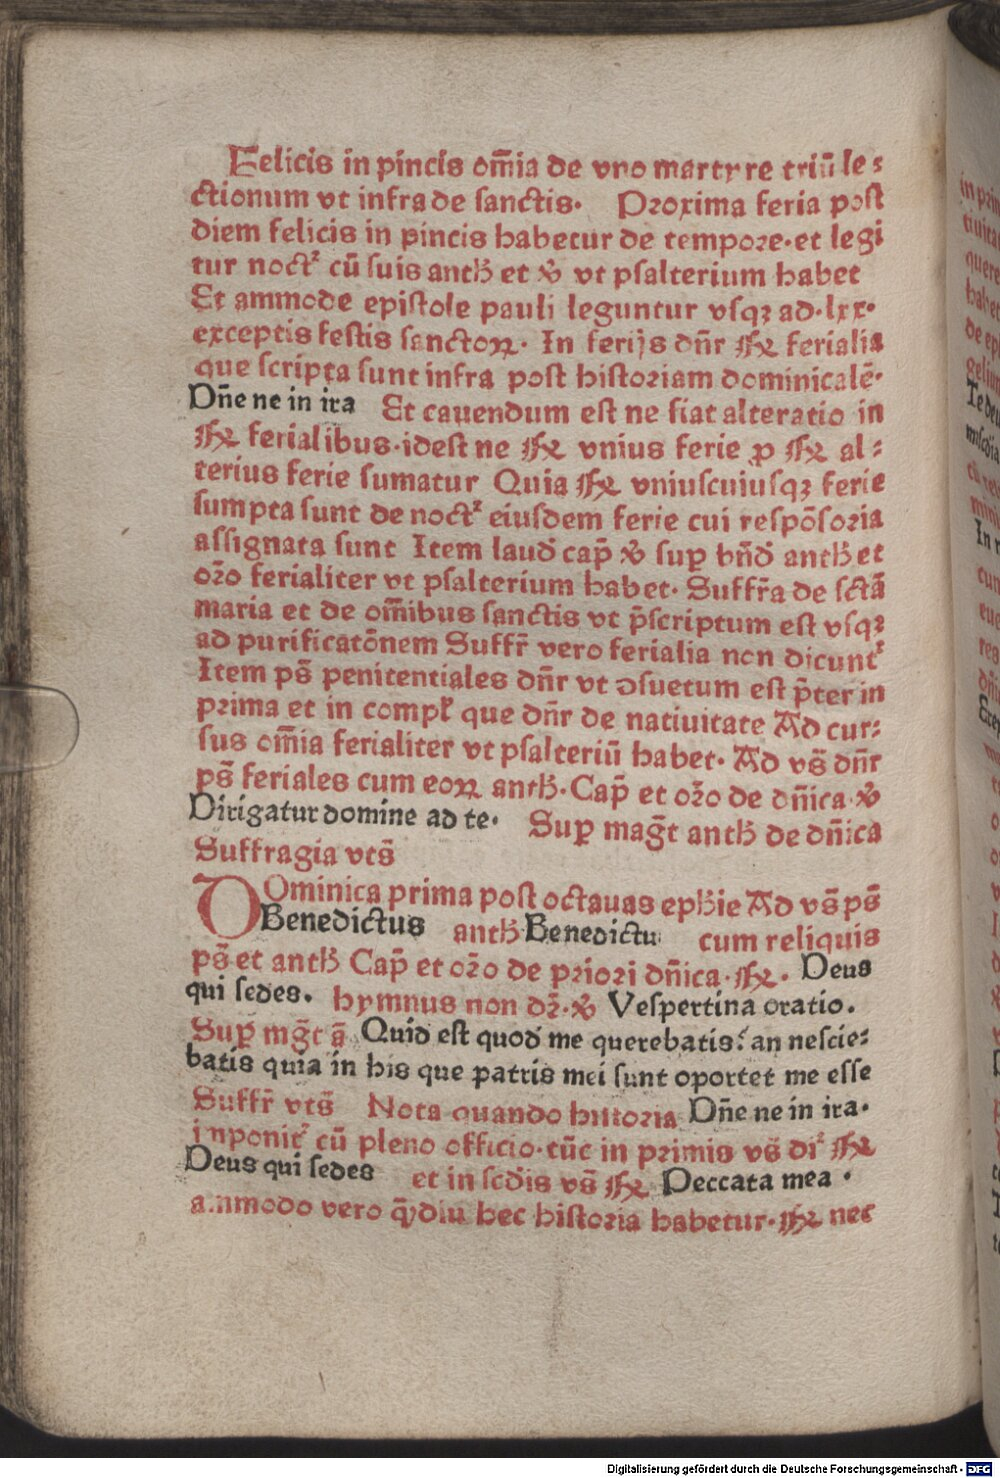 Felicis in pincis om̄ia de vno martyre triū le⸗
ctionum vt infra de sanctis. Proxima feria post
diem felicis in pincis habetur de tempore.et legi
tur noctꝰ cū suis anth̄ et ꝟ vt psalterium habet
Et ammode epistole pauli leguntur vsqꝫ ad.lxx.
exceptis festis sanctoꝝ. In ferijs dn̄r ℟ ferialia
que scripta sunt infra post historiam dominicalē.
Dn̄e ne in ira Et cauendum est ne fiat alteratio in
℟ ferialibus.idest ne ℟ vnius ferie ꝓ ℟ al⸗
terius ferie sumatur Quia ℟ vniuscuiusqꝫ ferie
sumpta sunt de noctꝰ eiusdem ferie cui respōsoria
assignata sunt Item laud̄ cap̄ ꝟ sup̄ bn̄d̄ anth̄ et
oꝛ̄o ferialiter vt psalterium habet. Suffr̄a de sctā
maria et de om̄ibus sanctis vt p̄scriptum est vsqꝫ
ad purificatōnem Suffr̄ vero ferialia non dicuntꝰ
Item ps̄ penitentiales dn̄r vt ꝯsuetum est p̄ter in
prima et in compł que dn̄r de natiuitate Ad cur⸗
sus om̄ia ferialiter vt psalteriū habet. Ad vs̄ dn̄r
ps̄ feriales cum eoꝝ anth̄. Cap̄ et oꝛ̄o de dn̄ica ꝟ
Dirigatur domine ad te. Sup̄ maḡt anth̄ de dn̄ica
Suffragia vts̄
DOminica prima post octauas eph̄ie Ad vs̄ ps̄
Benedictus anth̄ Benedictu cum reliquis
ps̄ et anth̄ Cap̄ et oꝛ̄o de priori dn̄ica. ℟. Deus
qui sedes. hymnus non dꝛ̄. ꝟ Vespertina oratio.
Sup̄ mḡt ā Quid est quod me querebatis: an nescie⸗
batis quia in his que patris mei sunt oportet me esse
Suffr̄ vts̄ Nota quando historia Dn̄e ne in ira.
inponitꝰ cū pleno officio.tūc in primis vs̄ diꝰ ℟
Deus qui sedes et in scd̄is vs̄ ℟ Peccata mea.
ammodo vero q̄diu hec historia habetur. ℟ nec
Digitalisierung gefördert durch die Deutsche Forschungsgemeinschaft - DFG